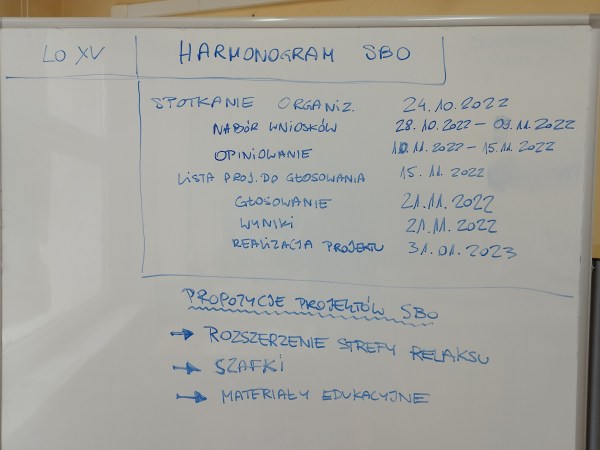 LO XV HARMONOGRAM SBO
SPOTKANIE ORGANIZ. 24.10.2022
NABÓR WNIOSKÓW 28.10.2022 – 09.11.2022
OPINIOWANIE 10.11.2022 – 15.11.2022
LISTA PROJ. DO GŁOSOWANIA 15.11.2022
GŁOSOWANIE 21.11.2022
WYNIKI 21.11.2022
REALIZACJA PROJEKTU 31.01.2023
PROPOZYCJE PROJEKTÓW SBO
→ ROZSZERZENIE STREFY RELAKSU
→ SZAFKI
→ MATERIAŁY EDUKACYJNE